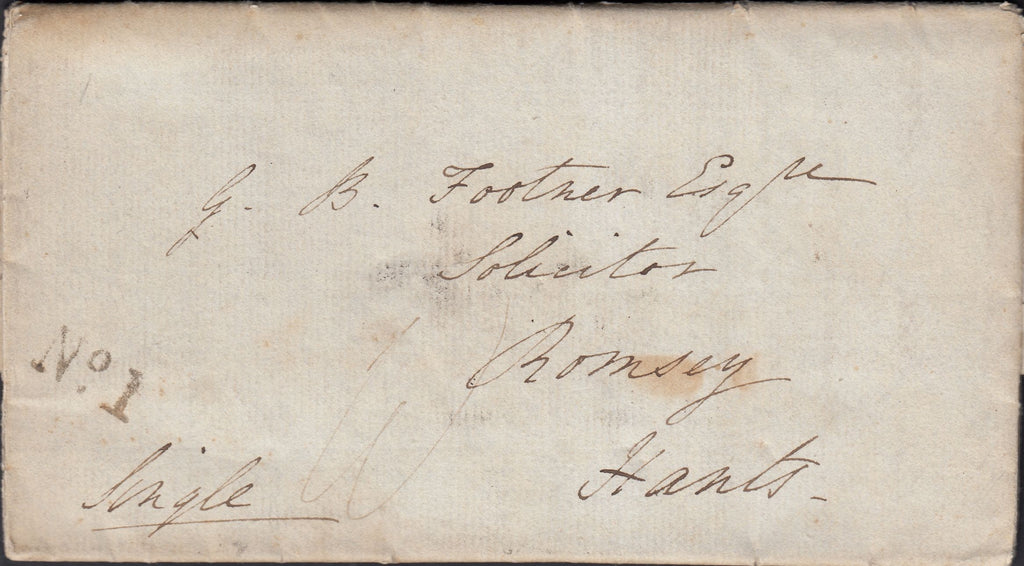 G. B. Footner Esqre
Solicitor
Romsey
Hants-
No. 1
Single